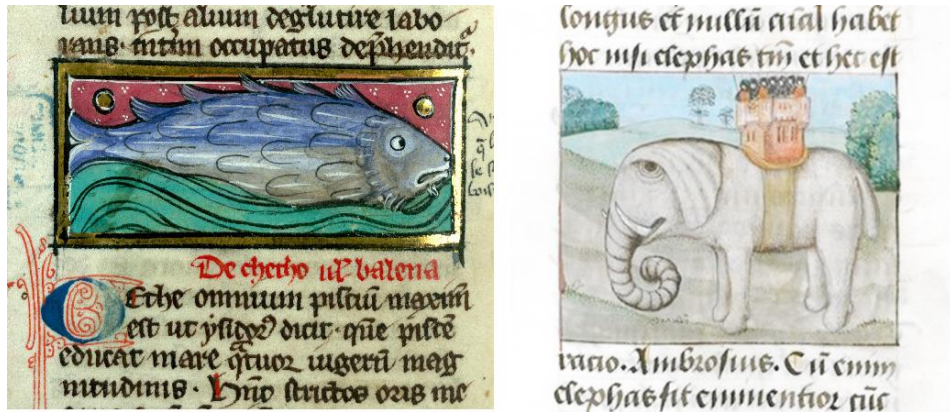 luim post alium deglutire labo
rans. tntm occupatus dephendit.
De checho ul' balena
Ethe omnium pistiu maxim
est ut ysidor dicit. que piste
educat mare qtuor iugeru mag
nitudinis. Hunc strictos oris me
longus et nullu aial habet
hoc nisi elephas tm et hec est
racio. Ambrosius. Cu enim
elephas sit eminentior cuc